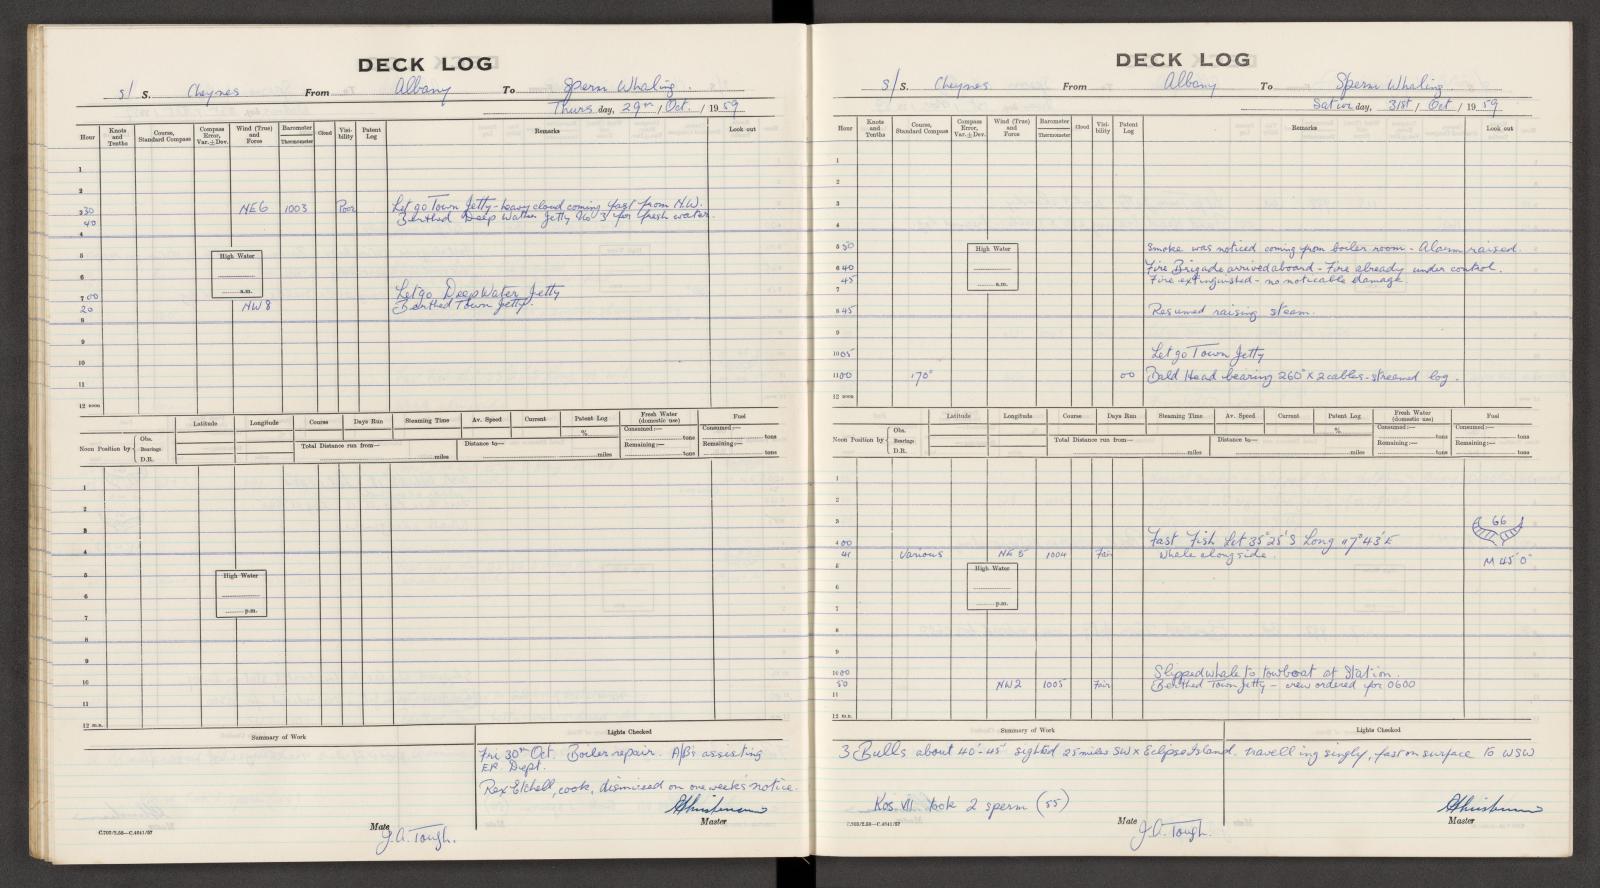 DECK LOG
s/ S. Cheynes From Albany To Sperm Whaling.
Thurs day, 29th / Oct. / 19 59
Hour Knots and Tenths Course, Standard Compass Compass Error, Var. ± Dev. Wind (True) and Force Barometer Thermometer Cloud Visibility Patent Log Remarks Look out
1
2
3 30 NE6 1003 Poor Let go Town Jetty - heavy cloud coming fast from N.W.
40 Berthed Deep Water Jetty No 3 for fresh water.
4
5 High Water
6
a.m.
7 00 Let go Deep Water Jetty
20 NW 8 Berthed Town Jetty.
8
9
10
11
12 noon
Latitude Longitude Course Days Run Steaming Time Av. Speed Current Patent Log % Fresh Water (domestic use) Fuel
Noon Position by Obs. Bearings D.R. Total Distance run from— miles Distance to— miles Consumed:— tons Remaining:— tons Consumed:— tons Remaining:— tons
1
2
3
4
5 High Water
6
p.m.
7
8
9
10
11
12 m.n.
Summary of Work Lights Checked
Fri 30th Oct. Boiler repair. A/B's assisting
ER Dept.
Rex Etchell, cook, dismissed on one week's notice.
Mate J.A. Tough. Master
C.703/2.58—C.4041/57
DECK LOG
s/ S. Cheynes From Albany To Sperm Whaling.
Satur day, 31st / Oct / 19 59
Hour Knots and Tenths Course, Standard Compass Compass Error, Var. ± Dev. Wind (True) and Force Barometer Thermometer Cloud Visibility Patent Log Remarks Look out
1
2
3
4
5 50 High Water Smoke was noticed coming from boiler room - Alarm raised.
6 40 Fire Brigade arrived aboard - Fire already under control.
45 a.m. Fire extinguished - no noticable damage.
7
8 45 Resumed raising steam.
9
10 05 Let go Town Jetty
11 00 170° 00 Bald Head bearing 260° x 2 cables - streamed log.
12 noon
Latitude Longitude Course Days Run Steaming Time Av. Speed Current Patent Log % Fresh Water (domestic use) Fuel
Noon Position by Obs. Bearings D.R. Total Distance run from— miles Distance to— miles Consumed:— tons Remaining:— tons Consumed:— tons Remaining:— tons
1
2
3 66
4 00 Fast Fish Lat 35°25'S Long 117°43'E
41 Various NE 5 1004 Fair Whale alongside.
M 45'0"
5 High Water
6
p.m.
7
8
9
10 00 Slipped whale to towboat at Station.
50 NW2 1005 Fair Berthed Town Jetty - crew ordered for 0600
11
12 m.n.
Summary of Work Lights Checked
3 Bulls about 40'-45' sighted 25 miles SW x Eclipse Island travelling singly, fast on surface to WSW
Kos VII took 2 sperm (55)
Mate J.A. Tough. Master
C.703/2.58—C.4041/57